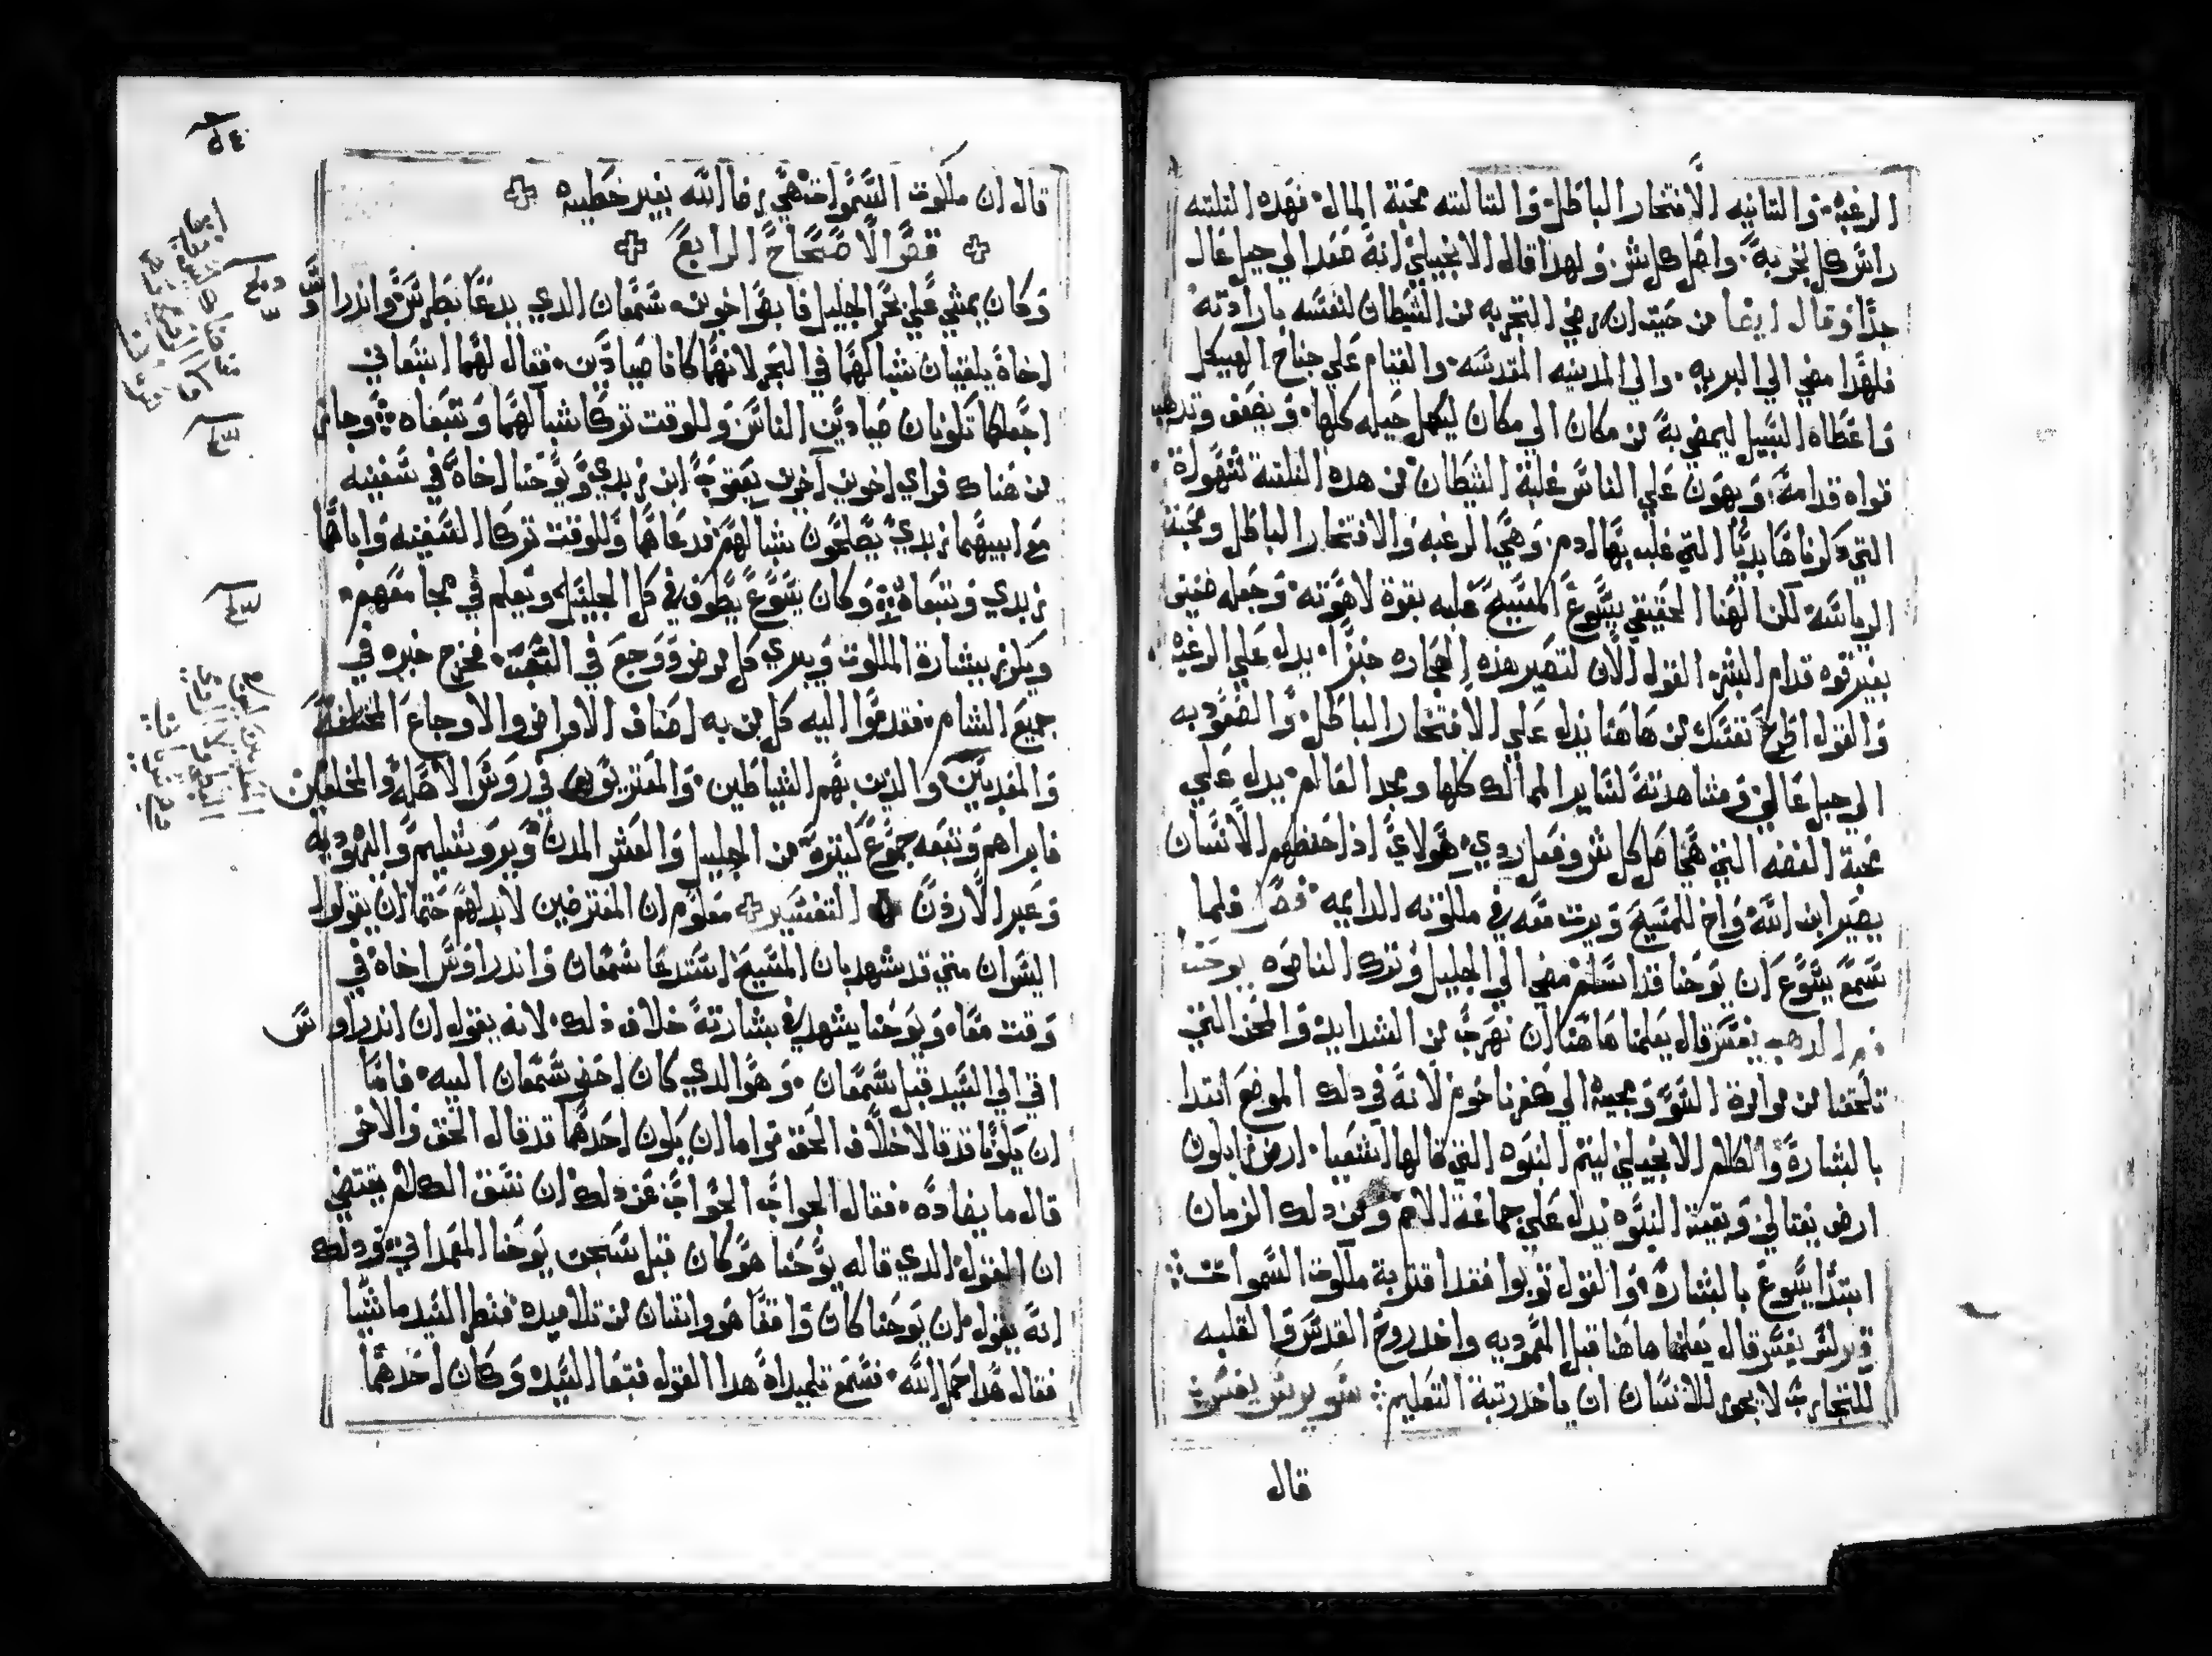 الرغبه والتانيه الافتخار الباطل والتالته محبة المال فهده التلته
راس كل تجربة واصل كل شر ولهدا قال الانجيلي انه صعد الي جبل عال
جدا وقال ايضا من حيت ان رضي التجربه من الشيطان لنفسه بارادته
فلهدا مضي الي البريه والي المدينه المقدسه والقيام علي جناح الهيكل
واعطاه السبيل ليمضي به من مكان الي مكان ليكمل حيله كلها وتضعف وتدهب
قواه قدامه ويهون علي الناس غلبة الشيطان من هده التلتة بسهولة
التي دكرناها بديا التي غلب بها ادم وهي الرغبه والافتخار الباطل ومحبة
الرياسه لكن الهنا الحقيقي يسوع المسيح غلبه بقوة لاهوته وجعله
بغير قوه قدام البشر القول الان لتصير هده الحجاره خبزا يدل علي الرغبه
والقول اطرح نفسك من هاهنا يدل علي الافتخار الباطل والصعود به
الي جبل عالي ومشاهدته لساير الممالك كلها ومجد العالم يدل علي
محبة الفضه التي هي اصل كل شر وفعل ردي هولاي اذا حفظهم الانسان
يصير ابن الله واخ للمسيح ويرت معه في ملكوته الدايمه فص فلما
سمع يسوع ان يوحنا قد اسلم مضي الي الجليل وترك الناصره يوحنا
فم الدهب يفسر قال يعلمنا هاهنا ان نهرب من الشدايد والمحن التي
تلحقنا من موامرة السو ومجيه الي كفرناحوم لانه في دلك الموضع ابتدا
بالبشارة والكلام الانجيلي ليتم النبوه التي قالها اشعيا ارض زابلون
ارض نفتالي وبقية النبوه يدل علي جماعة الامم ومن دلك الزمان
ابتدا يسوع بالبشارة والقول توبوا فقد اقتربة ملكوت السموات
قال يعلمنا هاهنا قبل المعموديه واخد روح القدس والغلبه
للتجارب لا يجوز للانسان ان ياخد رتبة التعليم يفسر
قال
قال ان ملكوت السموات هي رضا الله بغير خطيه
فص الاصحاح الرابع
وكان يمشي علي بحر الجليل فابصر اخوين شمعان الدي يدعا بطرس واندراوس
اخاة يلقيان شباكهما في البحر لانهما كانا صيادين فقال لهما اتبعاني
اجعلكما تكونان صيادين الناس وللوقت تركا شباكهما وتبعاه وجاز
من هناك فراي اخوين اخرين يعقوب ابن زبدي ويوحنا اخاه في سفينه
مع ابيهما زبدي يصلحون شباكهم فدعاهما وللوقت تركا السفينه واباهما
زبدي وتبعاه وكان يسوع يطوف في كل الجليل ويعلم في مجامعهم
ويكرز ببشارة الملكوت ويبري كل مرض ووجع في الشعب فخرج خبره في
جميع الشام فقدموا اليه كل من به اصناف الامراض والاوجاع المختلفة
والمعدبين والذين بهم الشياطين والمعتريون في روس الاهله والمخلعين
فابراهم وتبعه جموع كتيرة من الجليل والعشر المدن ويروشليم واليهوديه
وعبر الاردن التفسير معلوم ان المفترضين لابد لهم حتما ان يقولوا
اليس ان متي قد شهد بان المسيح استدعا شمعان واندراوس اخاه في
وقت معا ويوحنا يشهد في بشارته خلاف ذلك لانه يقول ان اندراوس
اتي الي السيد قبل شمعان وهو الدي كان احضر شمعان اليه فاما
ان يكونا قد قالا خلاف الحق واما ان يكون احدهما قد قال الحق والاخر
قال ما يضاده فقال الجواب الجواب عن دلك ان نسق الكلام يقتضي
ان القول الدي قاله يوحنا هو كان قبل سجن يوحنا المعمداني ودلك
انه يقول ان يوحنا كان واقفا هو واتنان من تلاميده فنظر السيد ماشيا
فقال هدا حمل الله فسمع تلميداه هدا القول فتبعا السيد وكان احدهما